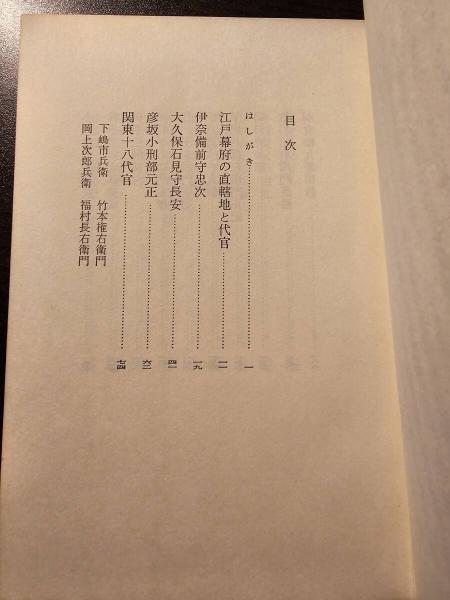 目次
はしがき……一
江戸幕府の直轄地と代官……一一
伊奈備前守忠次……一九
大久保石見守長安……四一
彦坂小刑部元正……六二
関東十八代官……七四
下嶋市兵衛 竹本権右衛門
岡上次郎兵衛 福村長右衛門